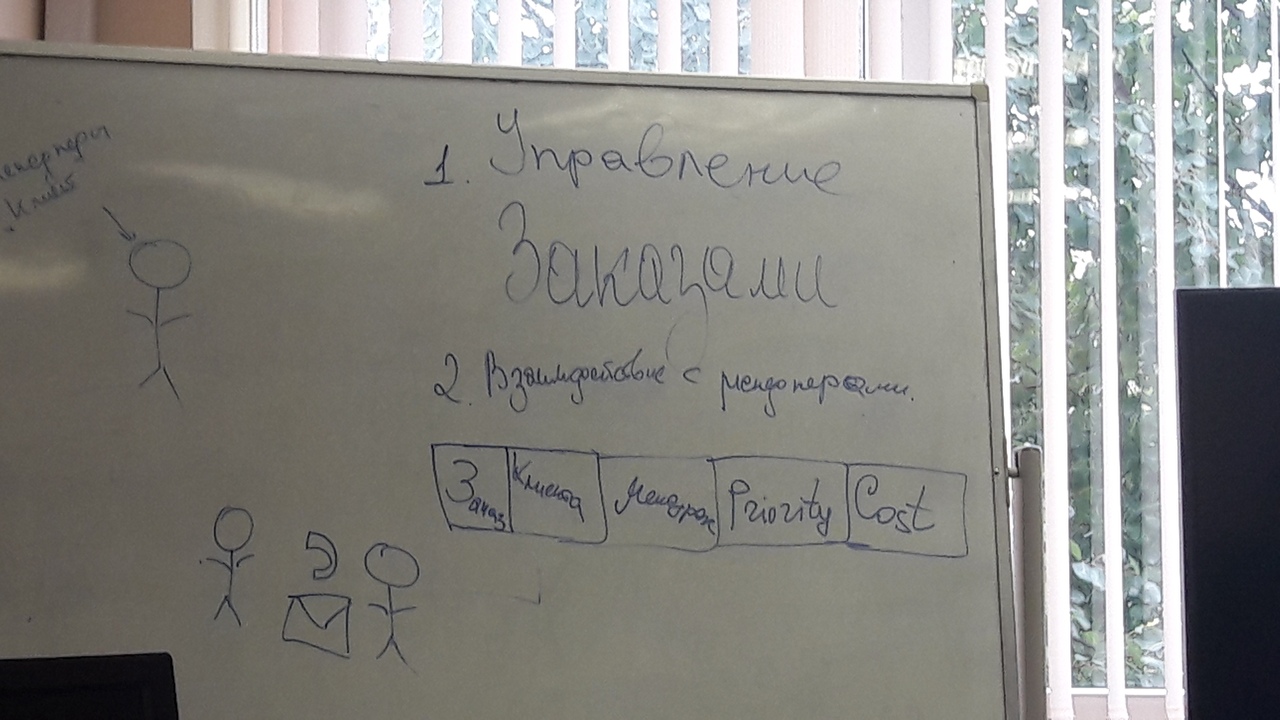 1. Управление
Заказами
2. Взаимдействие с менеджерами.
Заказ Клиента Менеджер Priority Cost